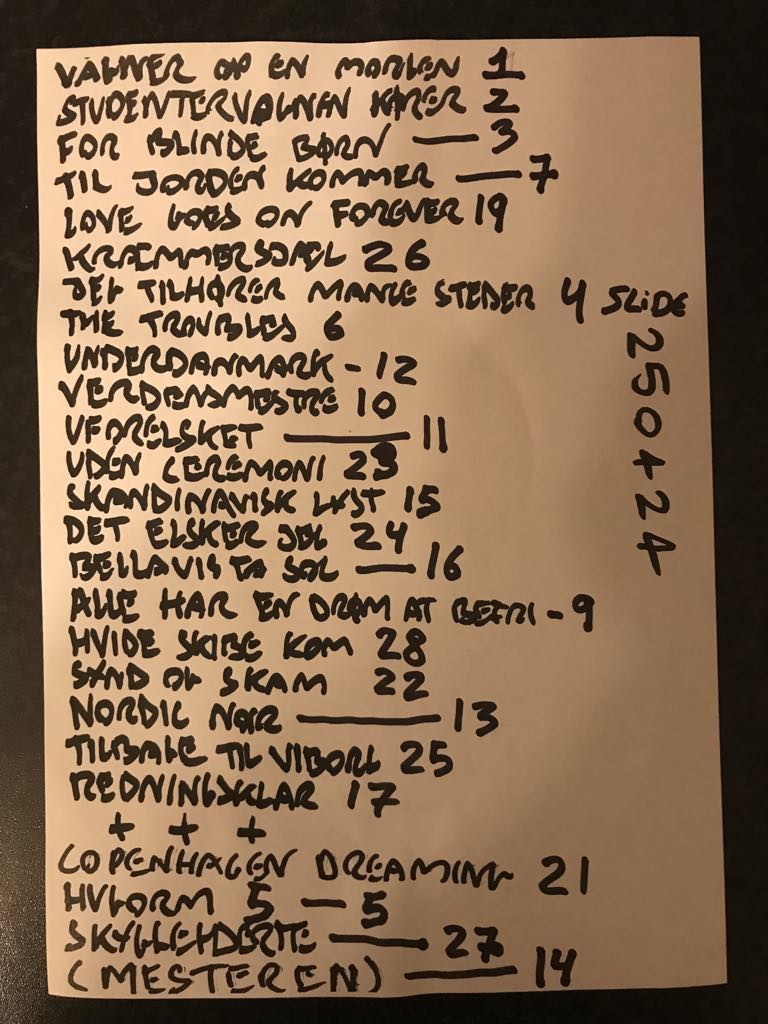 VÅGNER OP EN MORGEN 1
STUDENTERVOGNEN KØRER 2
FOR BLINDE BØRN — 3
TIL JORDEN KOMMER — 7
LOVE GOES ON FOREVER 19
KRÆMMERSJÆL 26
DET TILHØRER MANGE STEDER 4 SLIDE
THE TROUBLES 6
UNDERDANMARK - 12
VERDENSMESTRE 10
UFORELSKET — 11
UDEN CEREMONI 23
SKANDINAVISK LYST 15
DET ELSKER JEG 24
BELLAVISTA SOL — 16
ALLE HAR EN DRØM AT BEFRI - 9
HVIDE SKIBE KOM 28
SYND OG SKAM 22
NORDIC NOIR — 13
TILBAGE TIL VIBORG 25
REDNINGSKLAR 17
+ + +
COPENHAGEN DREAMING 21
HVGORM 5 — 5
— 27
(MESTEREN) — 14
250+24